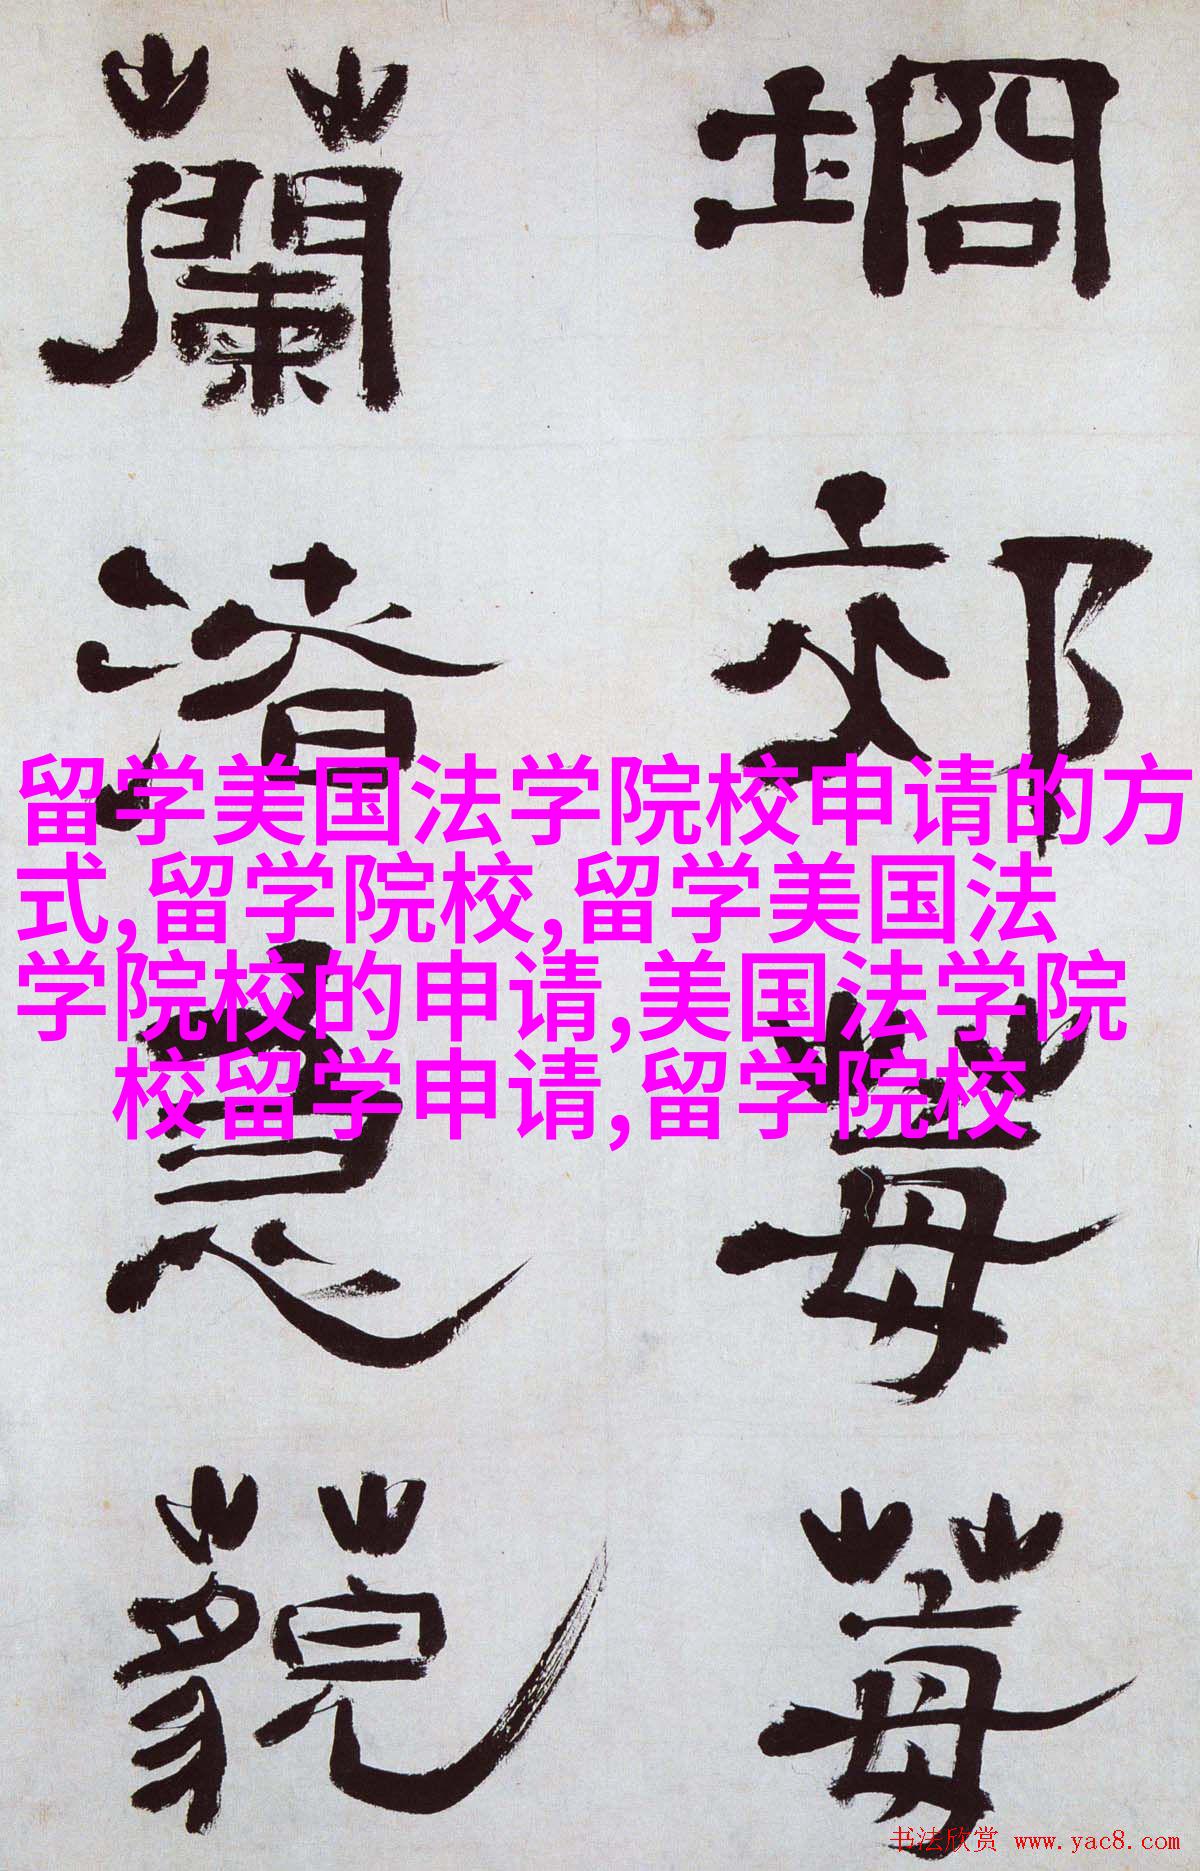 坰郊莓莓
蘭渚藐
留学美国法学院校申请的方
式,留学院校,留学美国法
学院校的申请,美国法学院
校留学申请,留学院校
书法欣赏 www.yac8.com